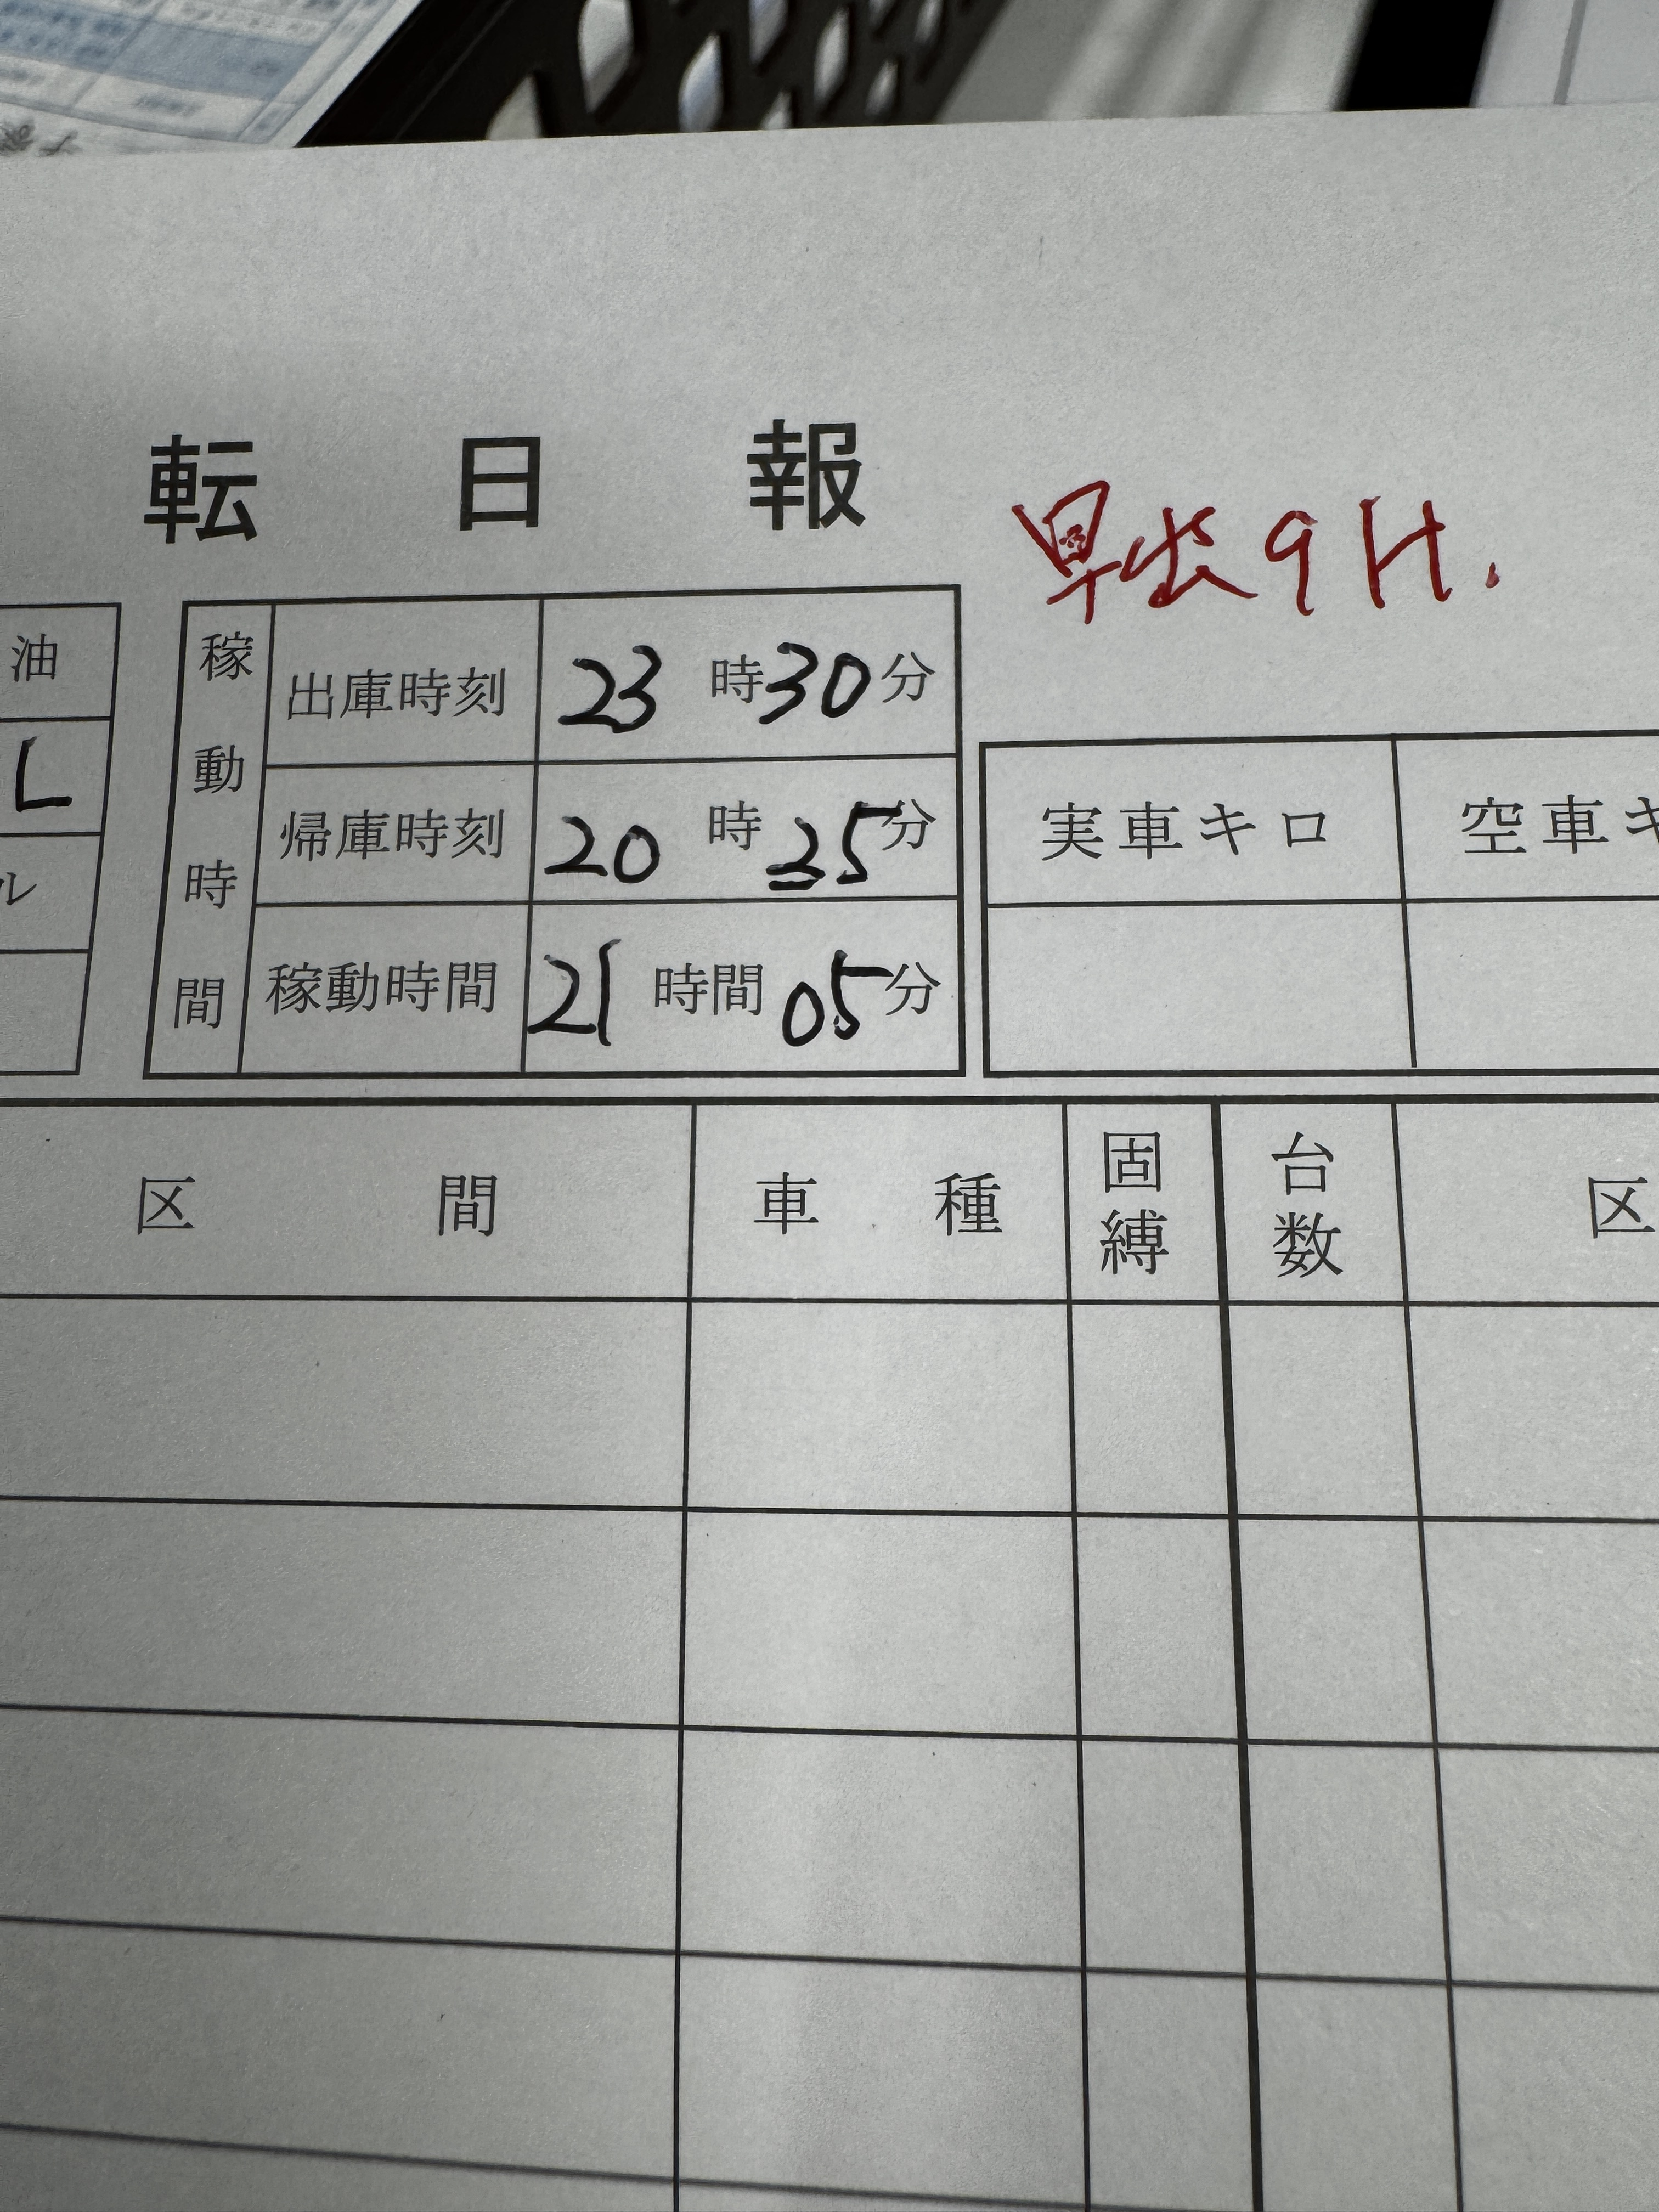 転 日 報
早出 9H.
油
L
ル
稼動時間
出庫時刻 23 時 30 分
帰庫時刻 20 時 35 分
稼動時間 21 時間 05 分
実車キロ 空車キ
区 間 車 種 固縛 台数 区